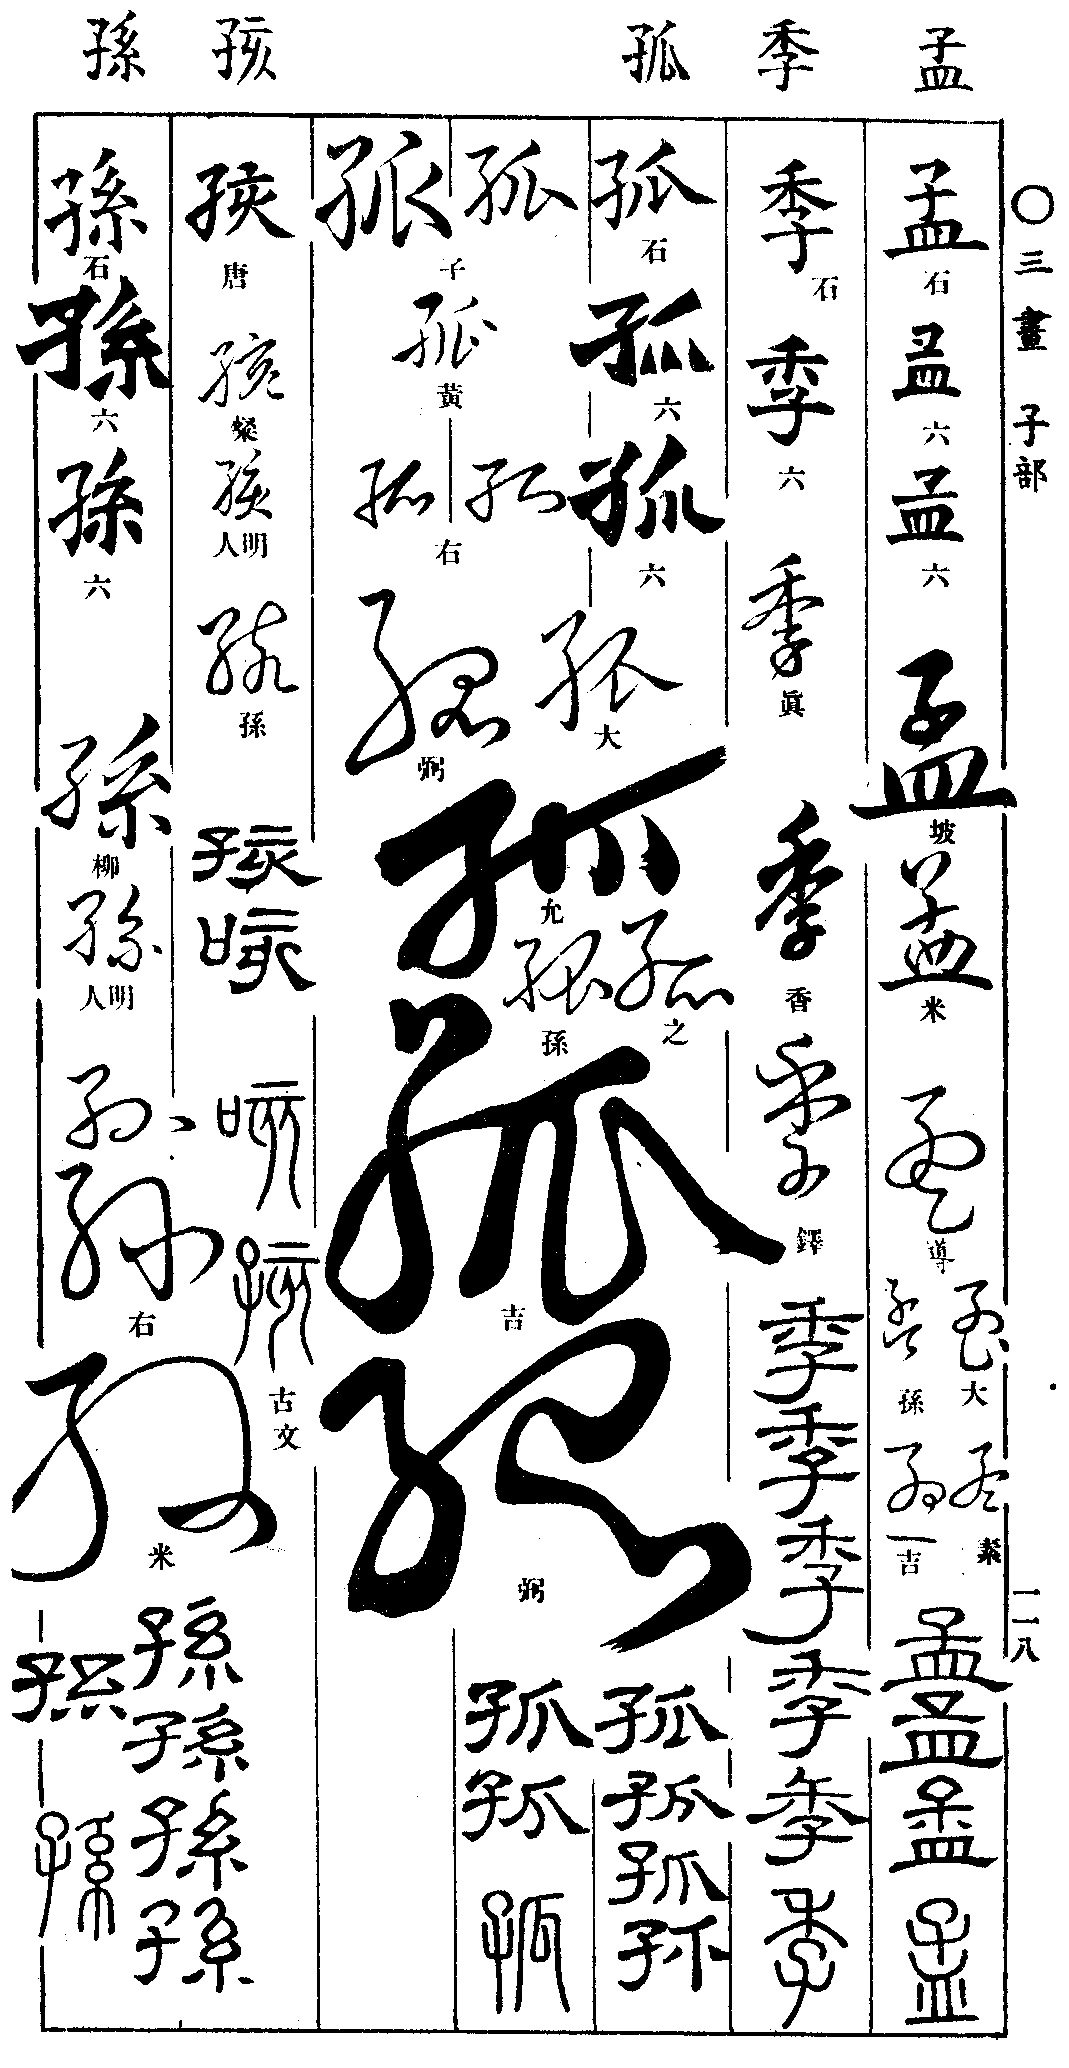 〇三畫 子部 一一八
孟
孟 石
孟 六
孟 六
孟 坡
孟 米
孟 導
孟 大
孟 孫
孟 素
孟 吉
孟
孟
孟
孟
季
季 石
季 六
季 眞
季 香
季 鐸
季
季
季
季
季
季
孤
孤 石
孤 六
孤 六
孤 孤 子
孤 黃
孤 孤 右
孤 大
孤 弼
孤 允
孤 之
孤 孫
孤 吉
孤 弼
孤 孤
孤 孤
孤
孤
孤
孩
孩 唐
孩 燊
孩 明人
孩 孫
孩
咳
咳
孩 古文
孫
孫 石
孫 六
孫 六
孫 柳
孫 明人
孫 孫 右
孫 米
孫
孫
孫
孫
孫
孫